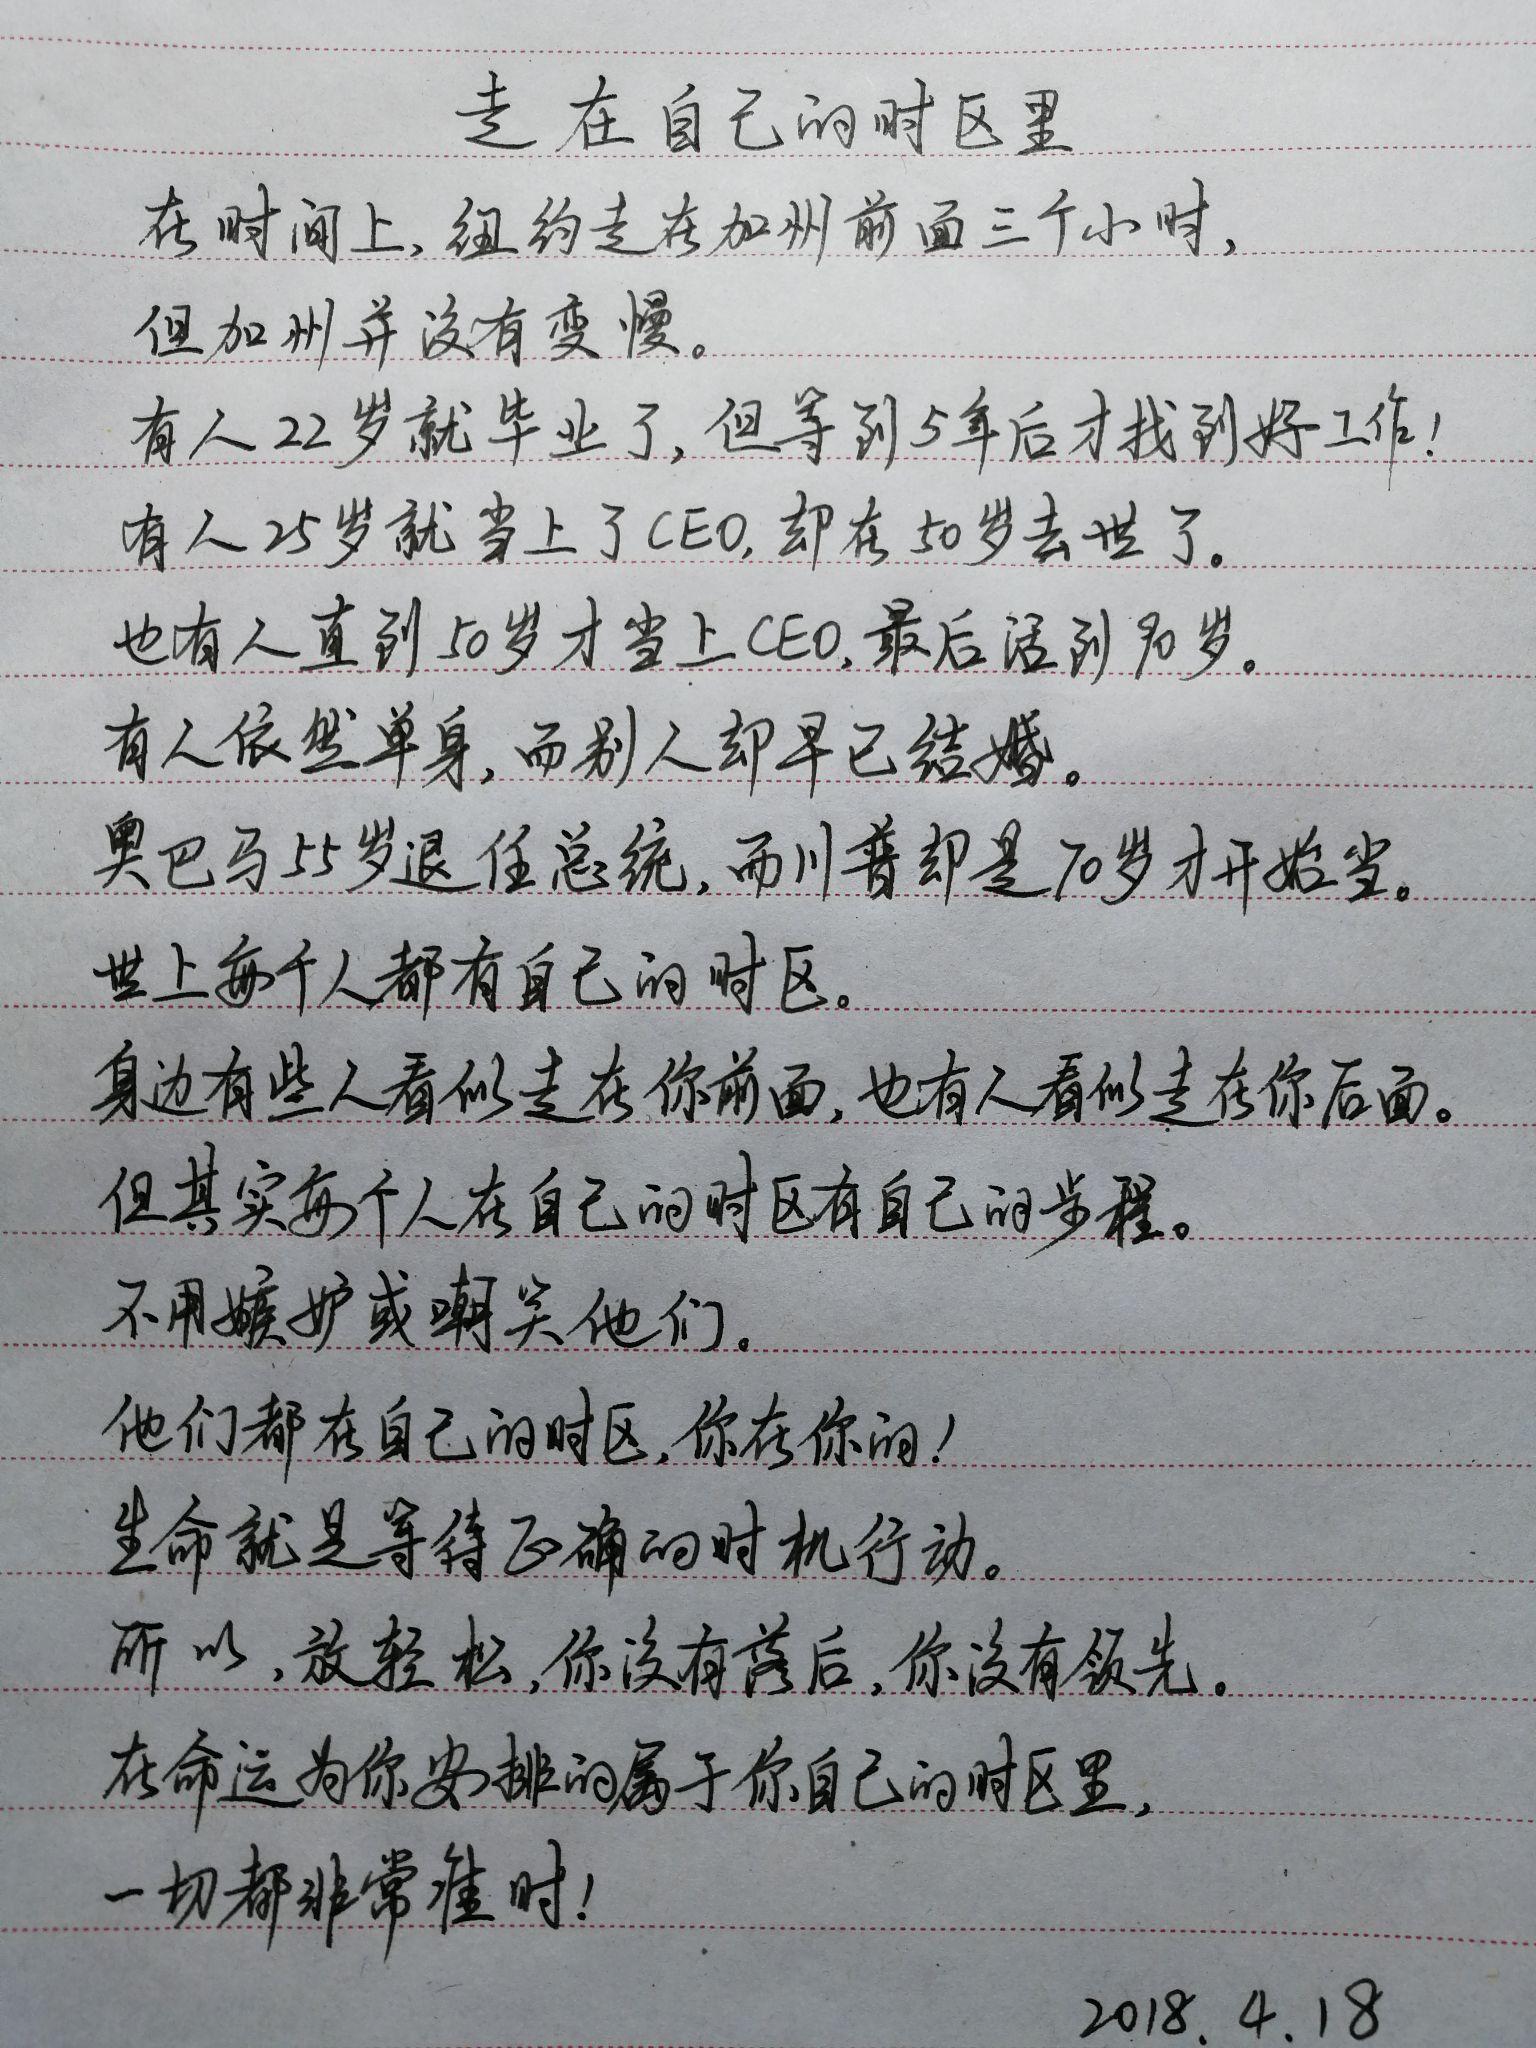 走在自己的时区里
在时间上,纽约走在加州前面三个小时,
但加州并没有变慢。
有人22岁就毕业了,但等到5年后才找到好工作!
有人25岁就当上了CEO,却在50岁去世了。
也有人直到50岁才当上CEO,最后活到90岁。
有人依然单身,而别人却早已结婚。
奥巴马55岁退任总统,而川普却是70岁才开始当。
世上每个人都有自己的时区。
身边有些人看似走在你前面,也有人看似走在你后面。
但其实每个人在自己的时区有自己的步程。
不用嫉妒或嘲笑他们。
他们都在自己的时区,你在你的!
生命就是等待正确的时机行动。
所以,放轻松,你没有落后,你没有领先。
在命运为你安排的属于你自己的时区里,
一切都非常准时!
2018.4.18